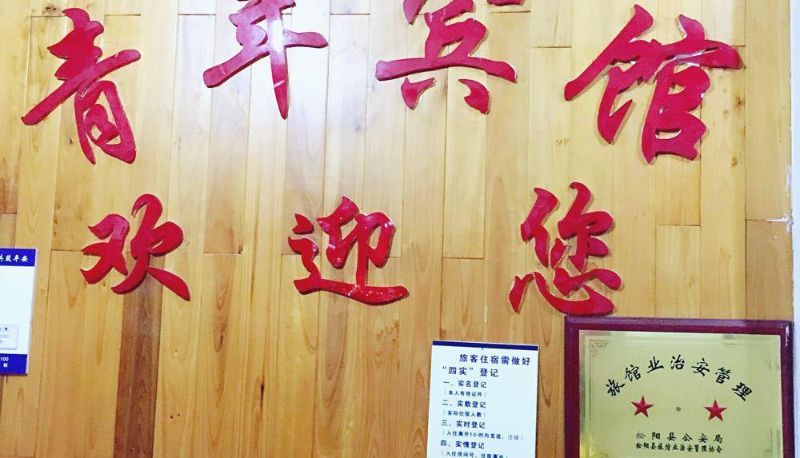 青年宾馆
欢迎您
旅客住宿需做好
“四实”登记
一、实名登记
（本人有效证件）
二、实数登记
（实际住宿人数）
三、实时登记
（入住离开1小时内发送、注销）
四、实情登记
旅馆业治安管理
松阳县公安局
松阳县旅馆业治安管理协会
平安
100